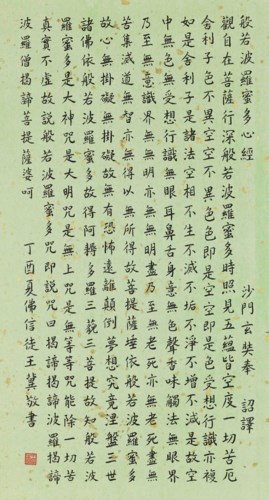 般若波羅蜜多心經 沙門玄奘奉 詔譯
觀自在菩薩行深般若波羅蜜多時照見五蘊皆空度一切苦厄
舍利子色不異空空不異色色即是空空即是色受想行識亦復
如是舍利子是諸法空相不生不滅不垢不淨不增不減是故空
中無色無受想行識無眼耳鼻舌身意無色聲香味觸法無眼界
乃至無意識界無無明亦無無明盡乃至無老死亦無老死盡無
苦集滅道無智亦無得以無所得故菩提薩埵依般若波羅蜜多
故心無掛礙無掛礙故無有恐怖遠離顛倒夢想究竟涅槃三世
諸佛依般若波羅蜜多故得阿耨多羅三藐三菩提故知般若波
羅蜜多是大神咒是大明咒是無上咒是無等等咒能除一切苦
真實不虛故說般若波羅蜜多咒即說咒曰揭諦揭諦波羅揭諦
波羅僧揭諦菩提薩婆呵 丁酉夏佛信徒王冀敬書